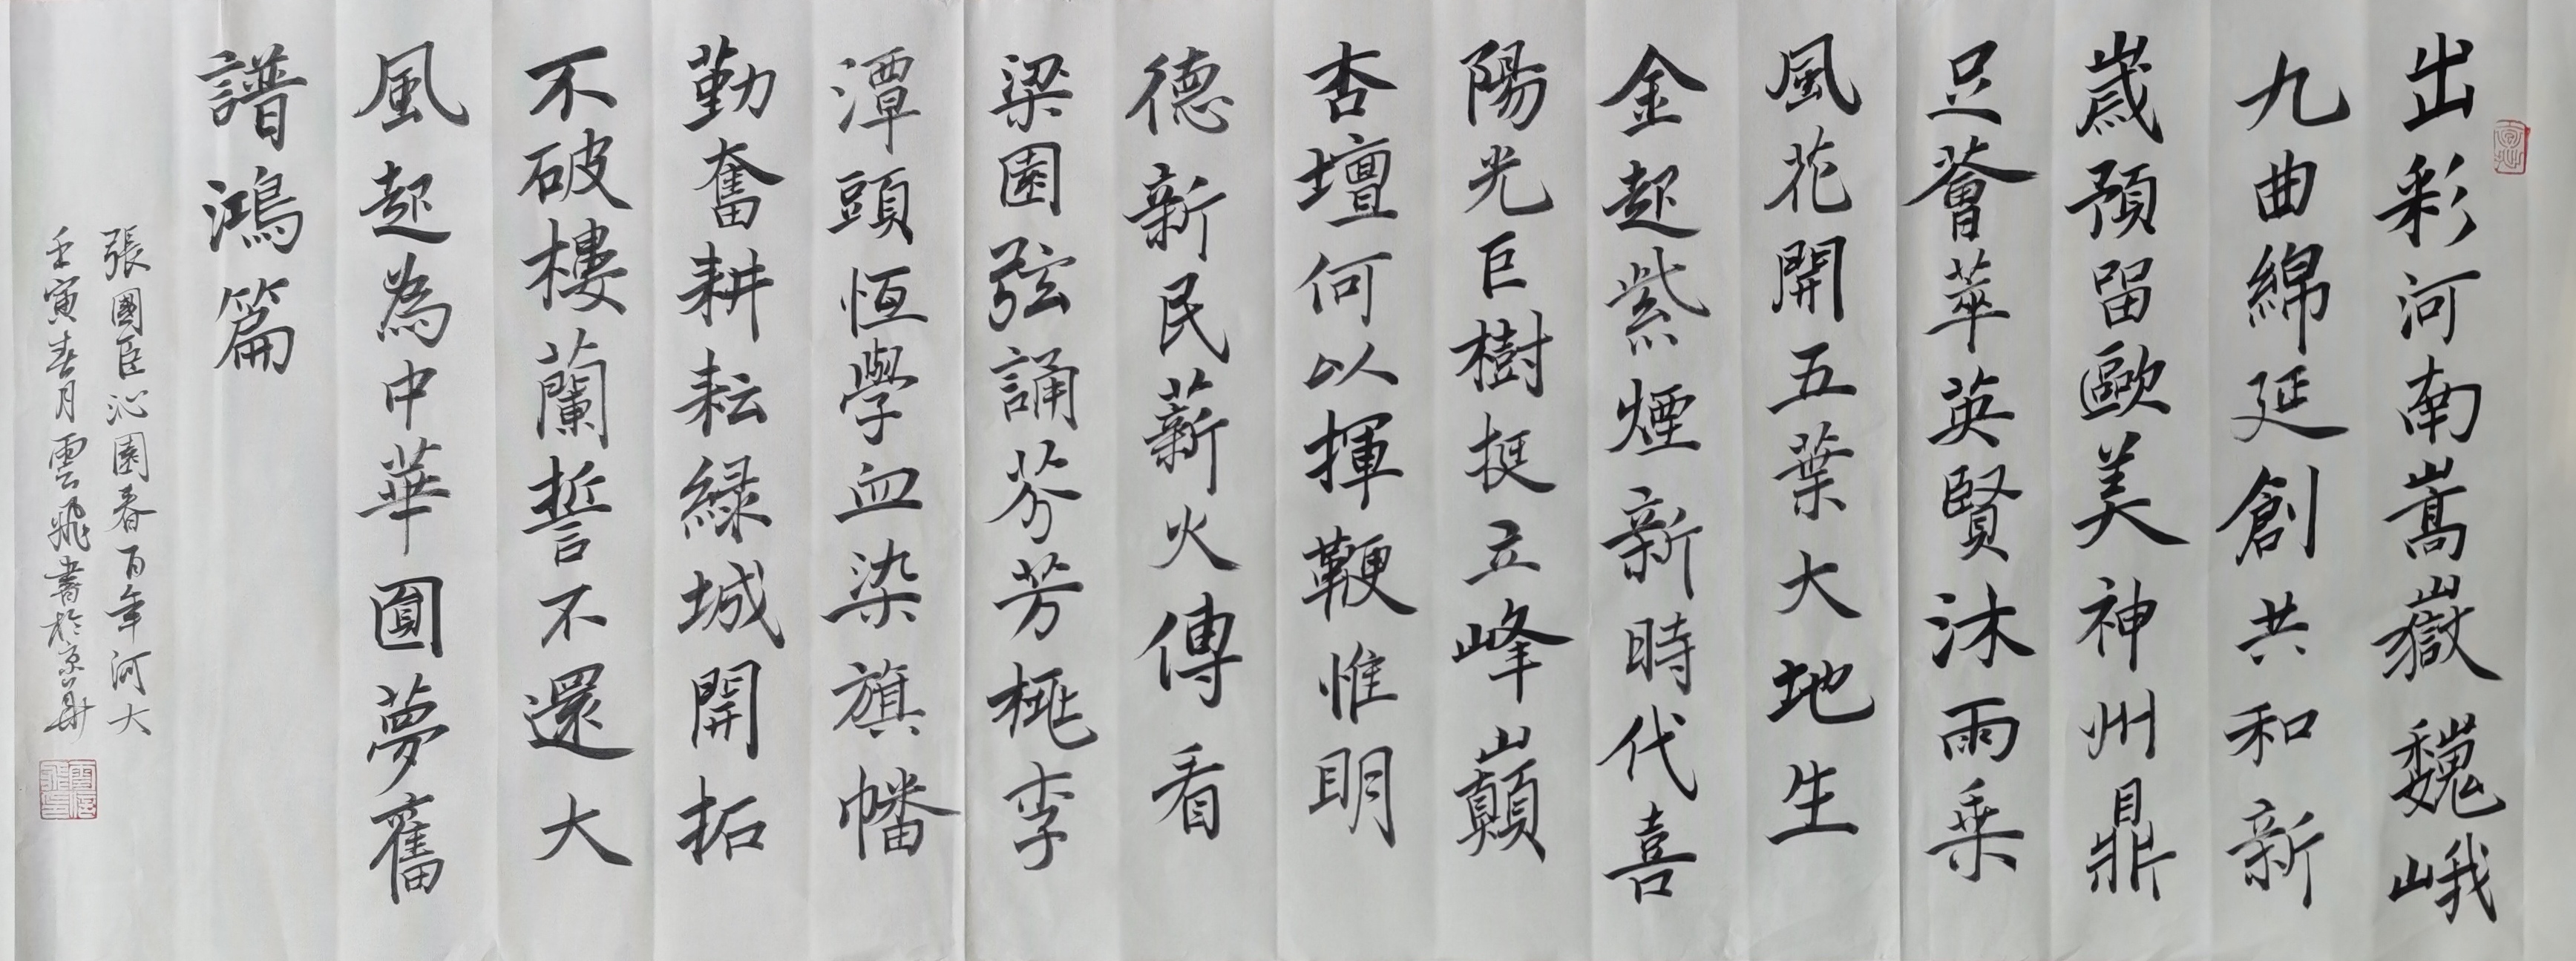 出彩河南嵩嶽巍峨
九曲綿延創共和新
歲預留歐美神州鼎
足薈萃英賢沐雨乗
風花開五葉大地生
金起紫煙新時代喜
陽光巨樹挺立峰巔
杏壇何以揮鞭惟明
德新民薪火傳看
梁園弦誦芬芳桃李
潭頭恆學血染旗幡
勤奮耕耘綠城開拓
不破樓蘭誓不還大
風起為中華圓夢奮
譜鴻篇
張國臣沁園春百年河大
壬寅春月雲飛書於京